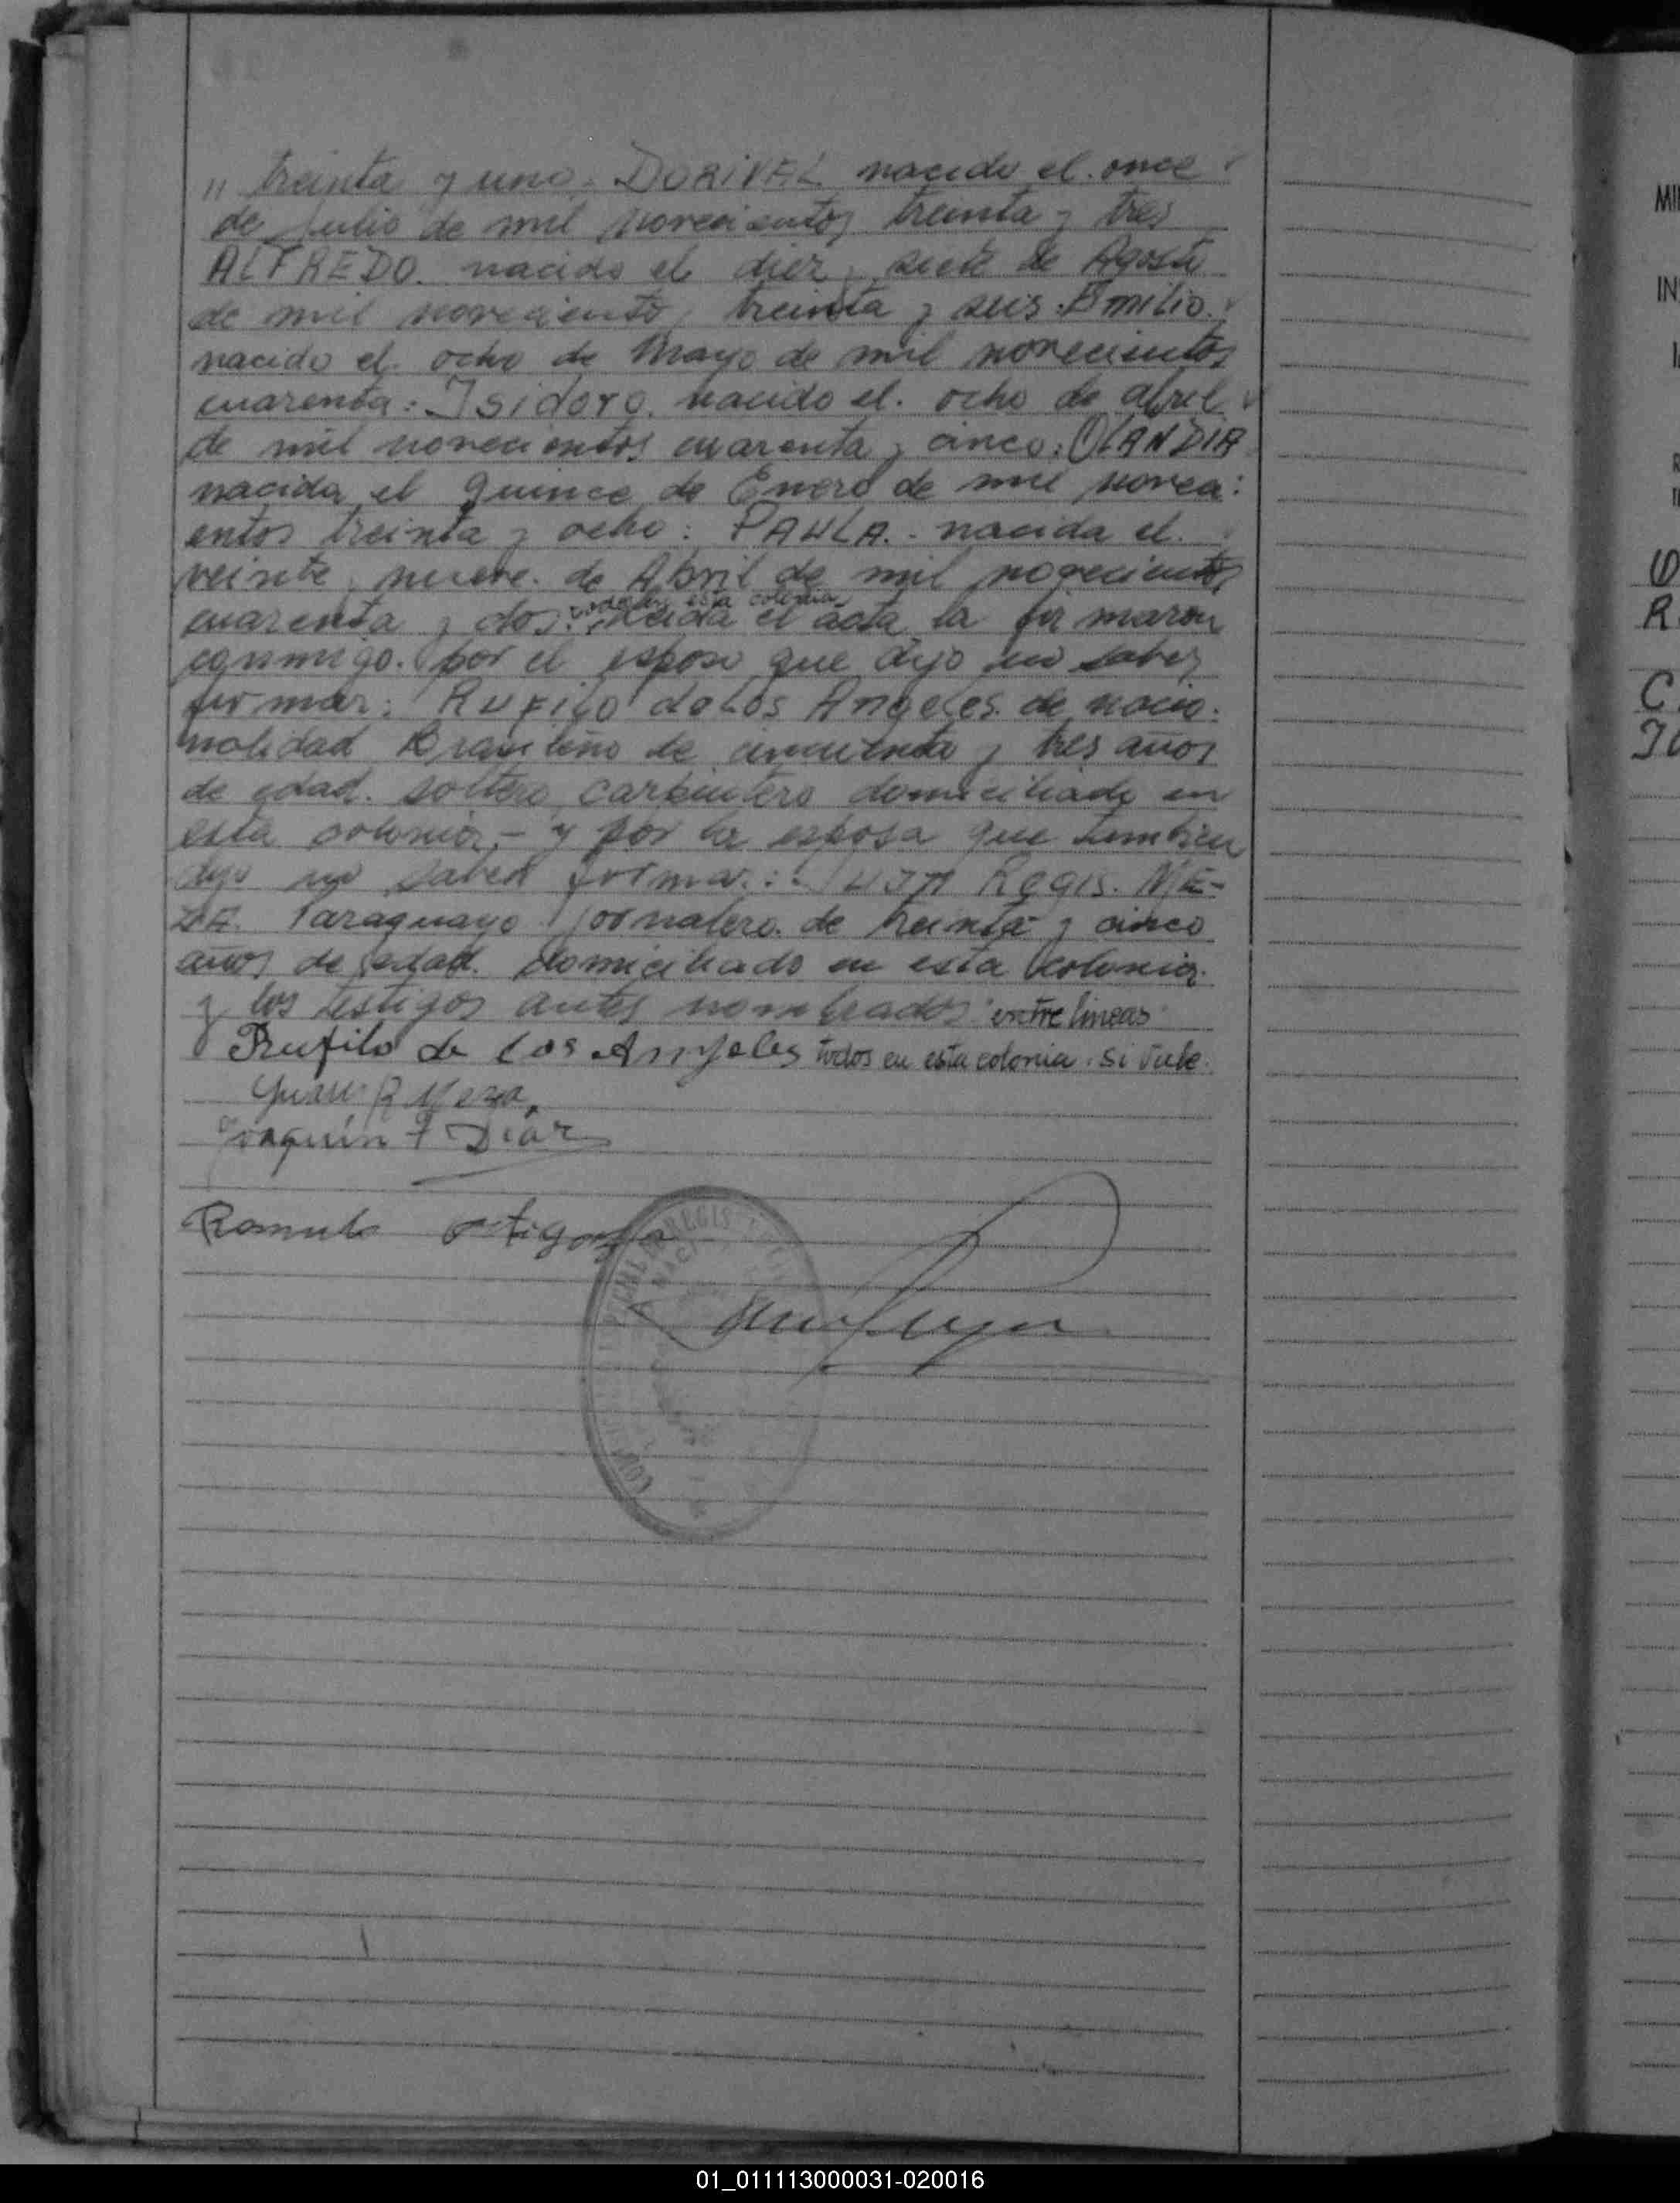 " treinta y uno. DORIVAL nacido el once
de Julio de mil novecientos treinta y tres
ALFREDO. nacido el diez y siete de Agosto
de mil novecientos treinta y seis. Emilio.
nacido el. ocho de Mayo de mil novecientos
cuarenta: Isidoro. nacido el. ocho de abril
de mil novecientos cuarenta y cinco: OLANDIA
nacida el quince de Enero de mil noveci:
entos treinta y ocho: PAULA. - nacida el.
veinte y nueve. de Abril de mil novecientos
todos en esta colonia
cuarenta y dos: Leida el acta la firmaron
conmigo. por el esposo que dijo no saber
firmar: Rufilo de Los Angeles. de nacio:
nalidad Brasileño de cincuenta y tres años
de edad. soltero carpintero domiciliado en
esta colonia - y por la esposa que tambien
dijo no saber firmar: JUAN Regis. ME-
ZA. Paraguayo jornalero. de treinta y cinco
años de edad. domiciliado en esta colonia.
y los testigos antes nombrados. entre lineas
Rufilo de los Angeles todos en esta colonia. Si vale.
Juan R Meza
Joaquin F Diaz
Romulo
REGIS